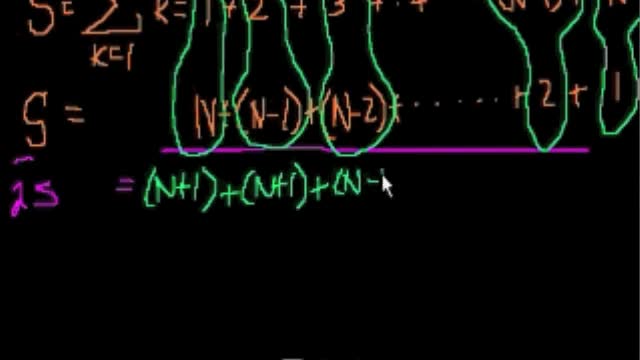 S = ∑ k=1 k = 1 + 2 + 3 + · · · (N-1) + N
S = N + (N-1) + (N-2) + · · · · · · + 2 + 1
2S = (N+1) + (N+1) + (N-